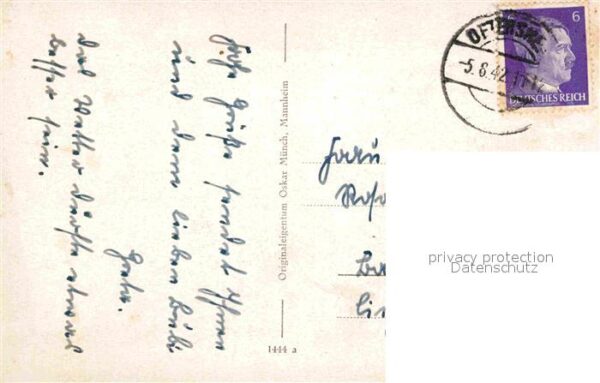 Frohe Grüße sendet Ihnen
und dem lieben Bübi
Greta.
Das Wetter dürfte etwas
besser sein.
Originaleigentum Oskar Münch, Mannheim
1444 a
OFTERSHE
-5.8.42.
6
DEUTSCHES REICH
Frau
privacy protection
Datenschutz